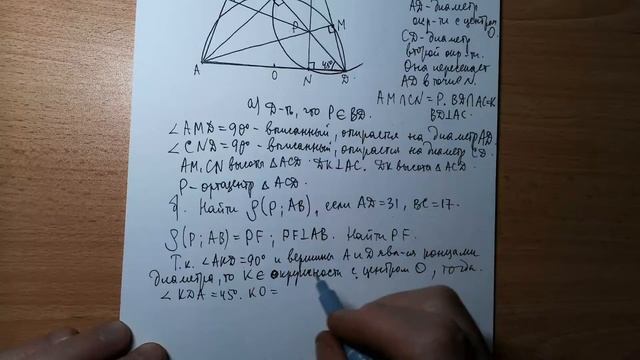 AD - диаметр
окр-ти с центром
O.
CD - диаметр
второй окр-ти.
Она пересекает
AD в точке N.
AM∩CN = P. BD∩AC=K
BD⊥AC.
P
M
45°
A
O
N
D
а) Д-ть, что P∈BD.
∠AMD=90° - вписанный, опирается на диаметр AD.
∠CND=90° - вписанный, опирается на диаметр CD.
AM, CN высоты ΔACD. DK⊥AC. DK высота ΔACD.
P - ортоцентр ΔACD.
б. Найти ρ(P; AB), если AD=31, BC=17.
ρ(P; AB) = PF; PF⊥AB. Найти PF.
Т.к. ∠AKD=90° и вершины A и D явл-ся концами
диаметра, то K∈ окружности с центром O, тогда
∠KDA=45°. KO=